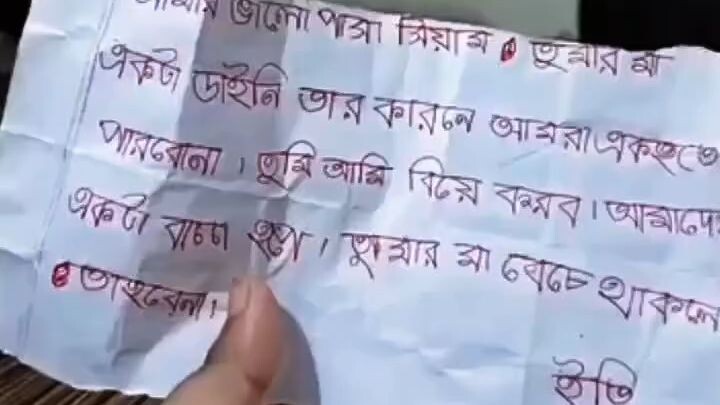 আমার ভালো পাসা সিয়াম তুমার মা
একটা ডাইনি তার কারনে আমরা একহতে
পারবোনা । তুমি আমি বিয়ে করব । আমাদের
একটা বাচ্চা হবে । তুমার মা বেচে থাকলে
তাহবেনা ।
ইতি